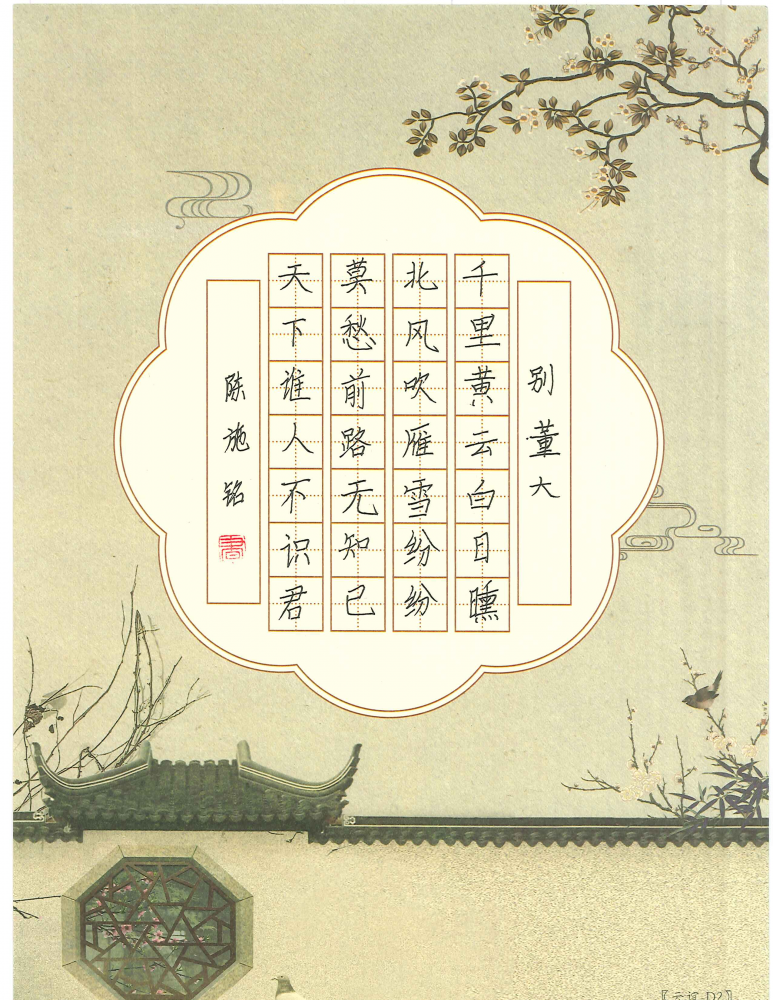 别董大
千里黄云白日曛
北风吹雁雪纷纷
莫愁前路无知己
天下谁人不识君
陈施铭